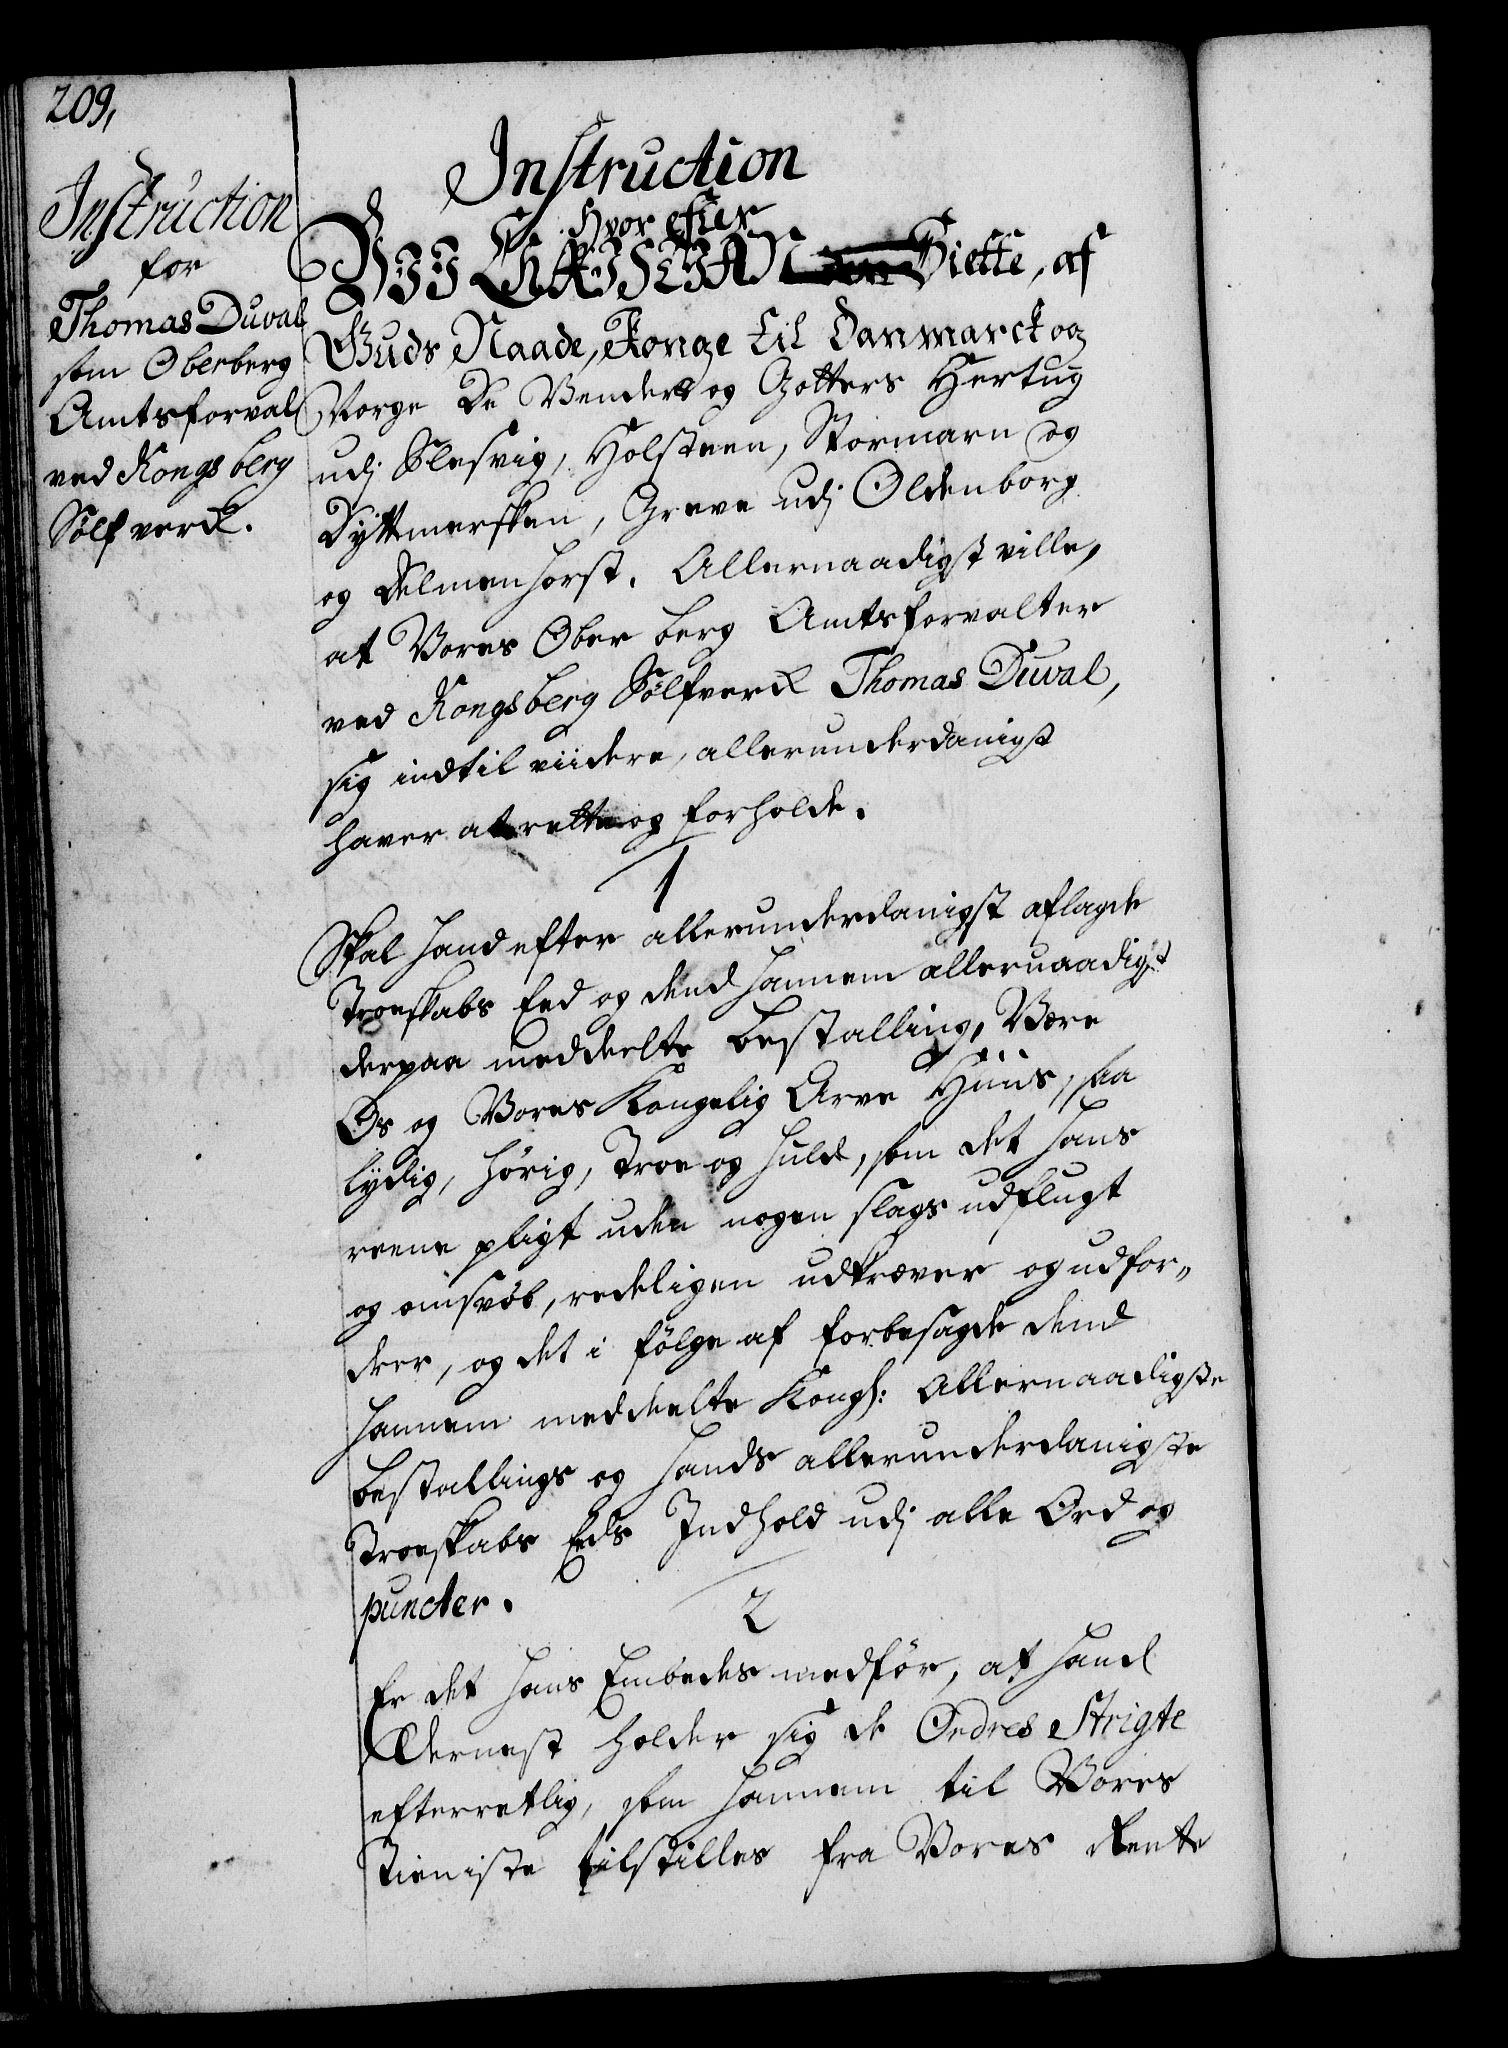 209,
Instruction
for
Thomas Duval
som Oberberg
Amtsforval
ved Kongsberg
Sølfverck.
Instruction
Hvor efter
VII CHRISTIAN den Siette, af
Guds Naade, Konge til Danmarck og
Norge De Venders og Gotters Hertug
udj Slesvig, Holsteen, Stormarn og
Dyttmersken, Greve udj Oldenborg
og Delmenhorst. Allernaadigst ville,
at Vores Ober berg Amtsforvalter
ved Kongsberg Sølfverck Thomas Duval,
sig indtil viidere, allerunderdanigst
haver at rette og forholde.
1
Skal hand efter allerunderdanigst aflagde
Troeskabs Eed og dend hannem allernaadigst
derpaa meddeelte bestalling, Være
Os og Vores Kongelig Arve Huus, saa
lydig, hørig, troe og huld, som det hans
reene pligt uden nogen slags udflugt
og omsvøb, redeligen udkræver og udfor„
drer, og det i følge af forbesagde dend
hannem meddeelte Kongl: Allernaadigste
bestallings og hands allerunderdanigste
Troeskabs Eeds Indhold udj alle Ord og
puncter.
2
Er det hans Embedes medfør, at hand
Dernest holder sig de Ordres Strigte
efterretlig, som hannem til Vores
tieniste tilstilles fra Vores Rente